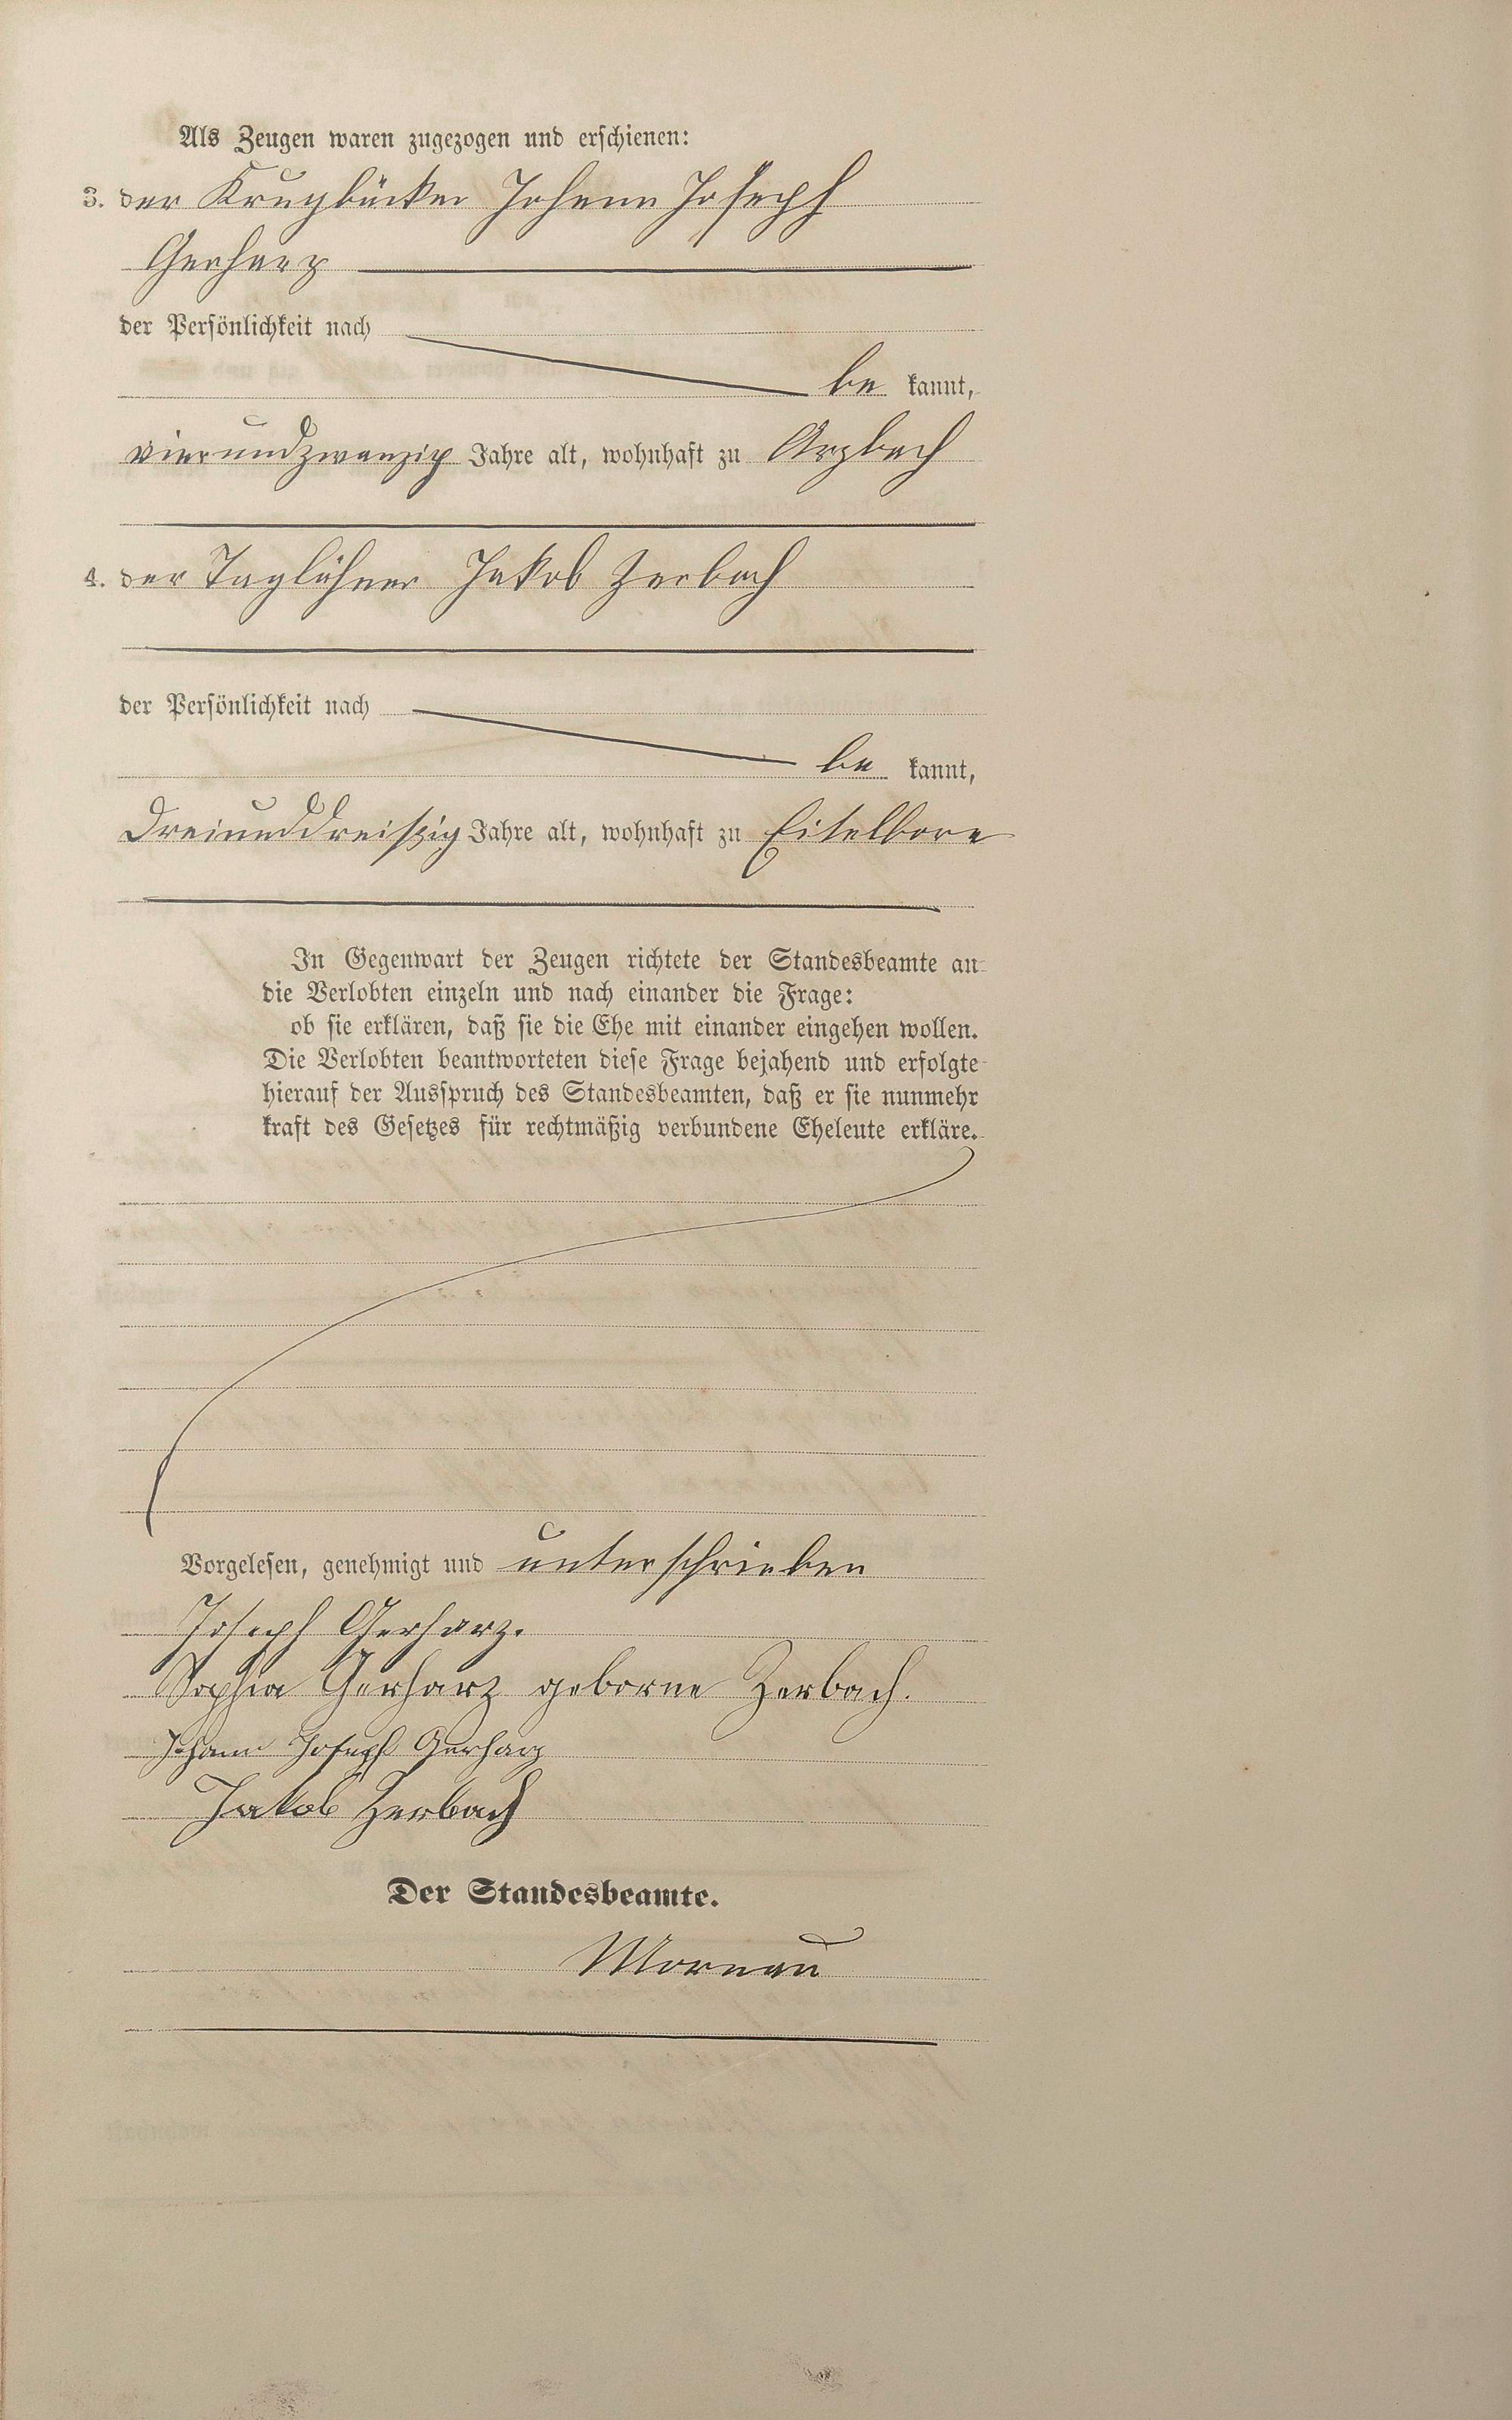 Als Zeugen waren zugezogen und erschienen:
3. der Krugbäcker Johann Joseph
Gerharz
der Persönlichkeit nach
be kannt,
vierundzwanzig Jahre alt, wohnhaft zu Arzbach
4. der Taglöhner Jakob Zerbach
der Persönlichkeit nach
be kannt,
dreiunddreißig Jahre alt, wohnhaft zu Eitelborn
In Gegenwart der Zeugen richtete der Standesbeamte an
die Verlobten einzeln und nach einander die Frage:
ob sie erklären, daß sie die Ehe mit einander eingehen wollen.
Die Verlobten beantworteten diese Frage bejahend und erfolgte
hierauf der Ausspruch des Standesbeamten, daß er sie nunmehr
kraft des Gesetzes für rechtmäßig verbundene Eheleute erkläre.
Vorgelesen, genehmigt und unterschrieben
Joseph Gerharz.
Sophia Gerharz geborne Zerbach.
Johann Joseph Gerharz
Jakob Zerbach
Der Standesbeamte.
Mornau